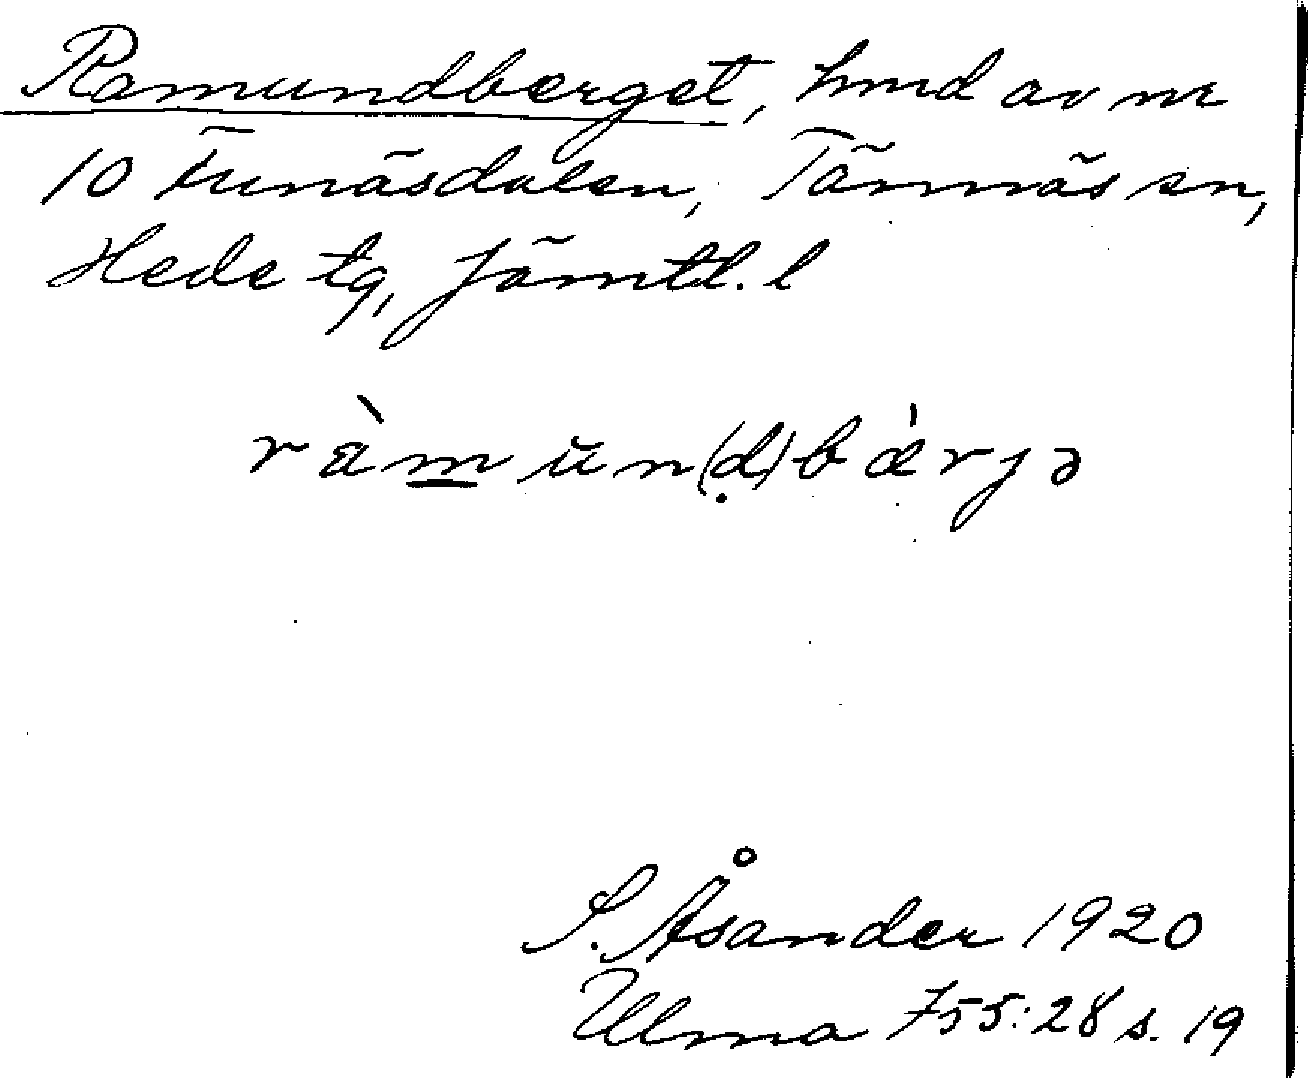 Ramundberget, hmd av nr
10 Funäsdalen, Tännäs sn,
Hede tg, Jämtl. l
ràmun(d)bærjə
S. Åsander 1920
Ulma 755:28 s. 19